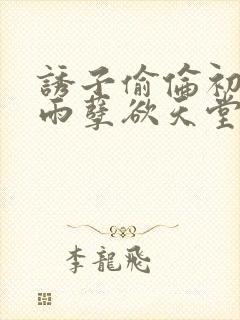 誘子偷倫初
雨孽欲天堂
李龍飛